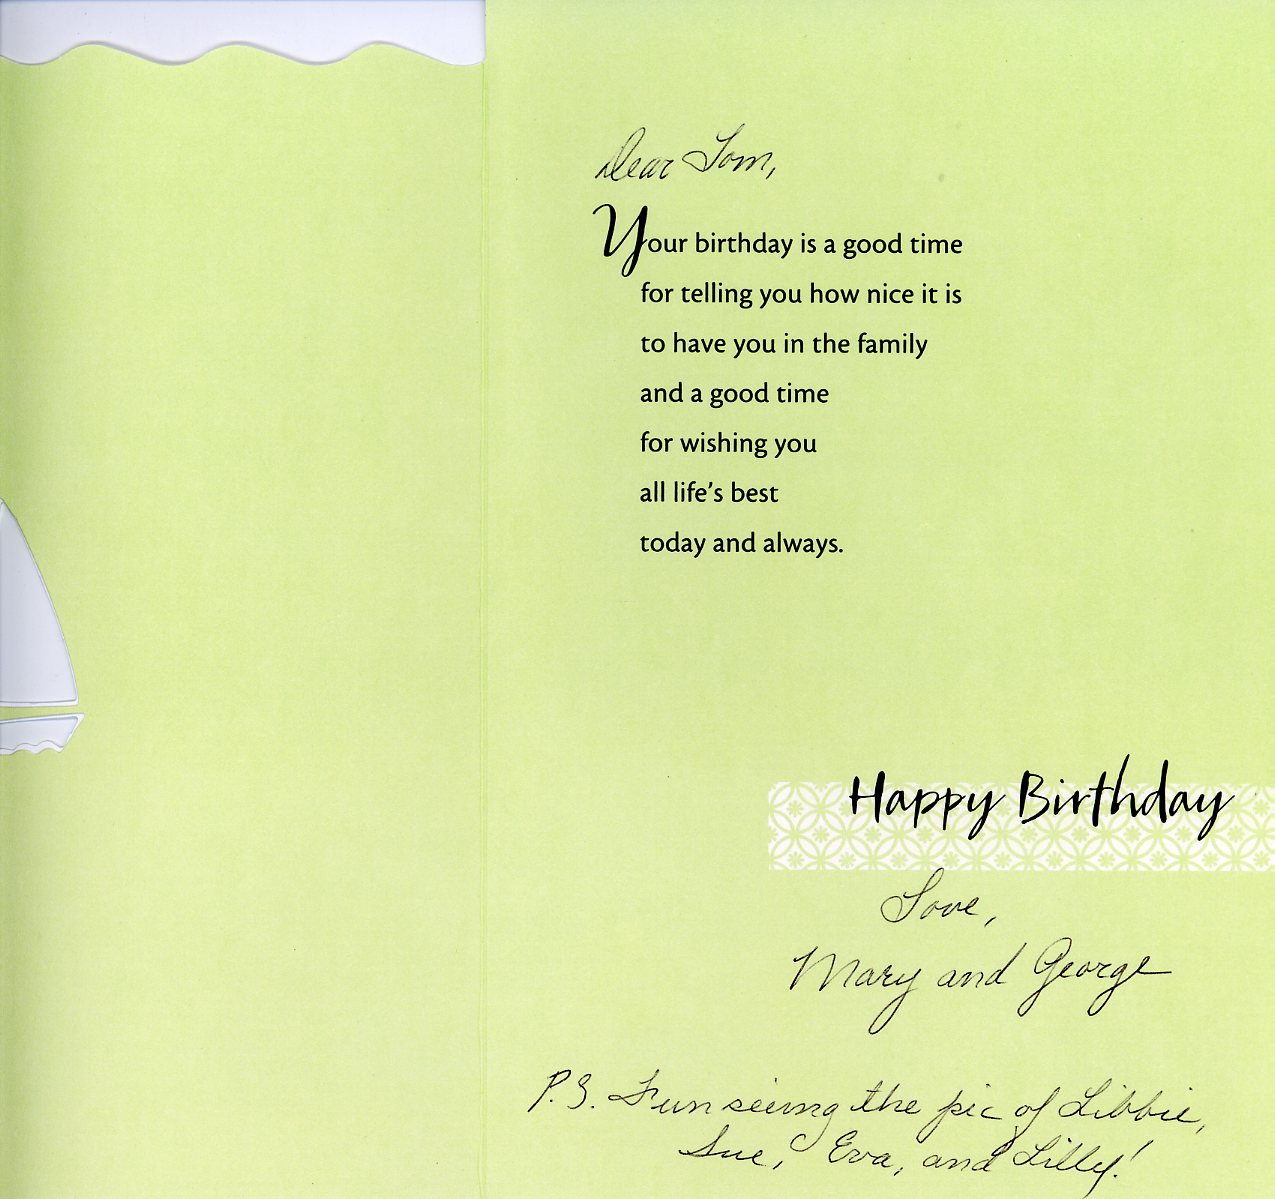 Dear Tom,
Your birthday is a good time
for telling you how nice it is
to have you in the family
and a good time
for wishing you
all life's best
today and always.
Happy Birthday
Love,
Mary and George
P.S. Fun seeing the pic of Libbie,
Sue, Eva, and Lilly!